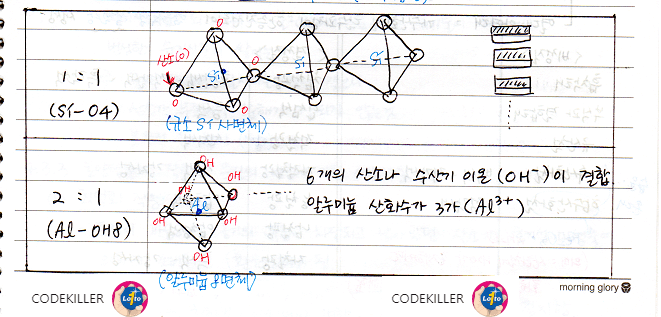 O
산소(O)
Si
O
Si
Si
1 : 1
(Si-O4)
O
O
(규소 Si 사면체)
OH
OH
OH
6개의 산소나 수산기 이온(OH⁻)이 결합
2 : 1
Al
알루미늄 산화수가 3가(Al³⁺)
(Al-OH8)
OH
OH
OH
(알루미늄 8면체)
morning glory
CODEKILLER
Lotto
CODEKILLER
Lotto